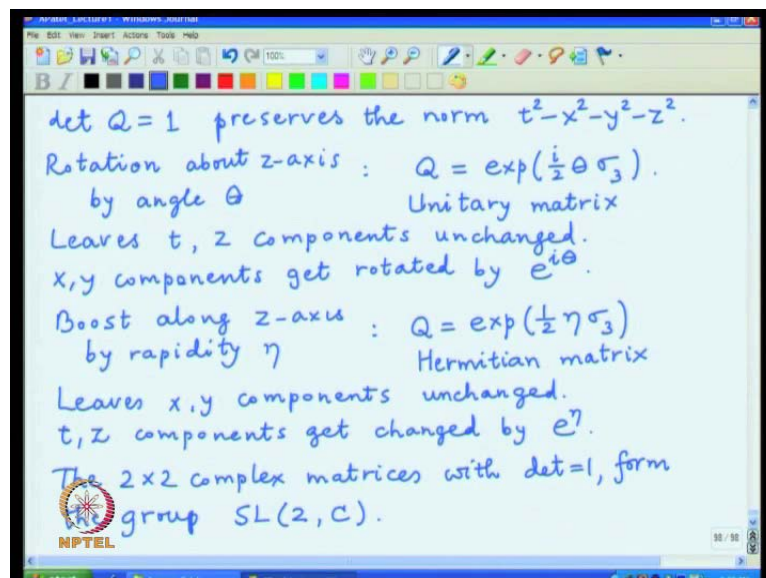 APatel_Lecture1 - Windows Journal
File Edit View Insert Actions Tools Help
100%
B I
det Q = 1 preserves the norm t²-x²-y²-z².
Rotation about z-axis : Q = exp(i/2 θ σ₃).
by angle θ Unitary matrix
Leaves t, z components unchanged.
x, y components get rotated by e^{iθ}.
Boost along z-axis : Q = exp(1/2 η σ₃)
by rapidity η Hermitian matrix
Leaves x, y components unchanged.
t, z components get changed by e^η.
The 2×2 complex matrices with det=1, form
the group SL(2, C).
NPTEL
98 / 98